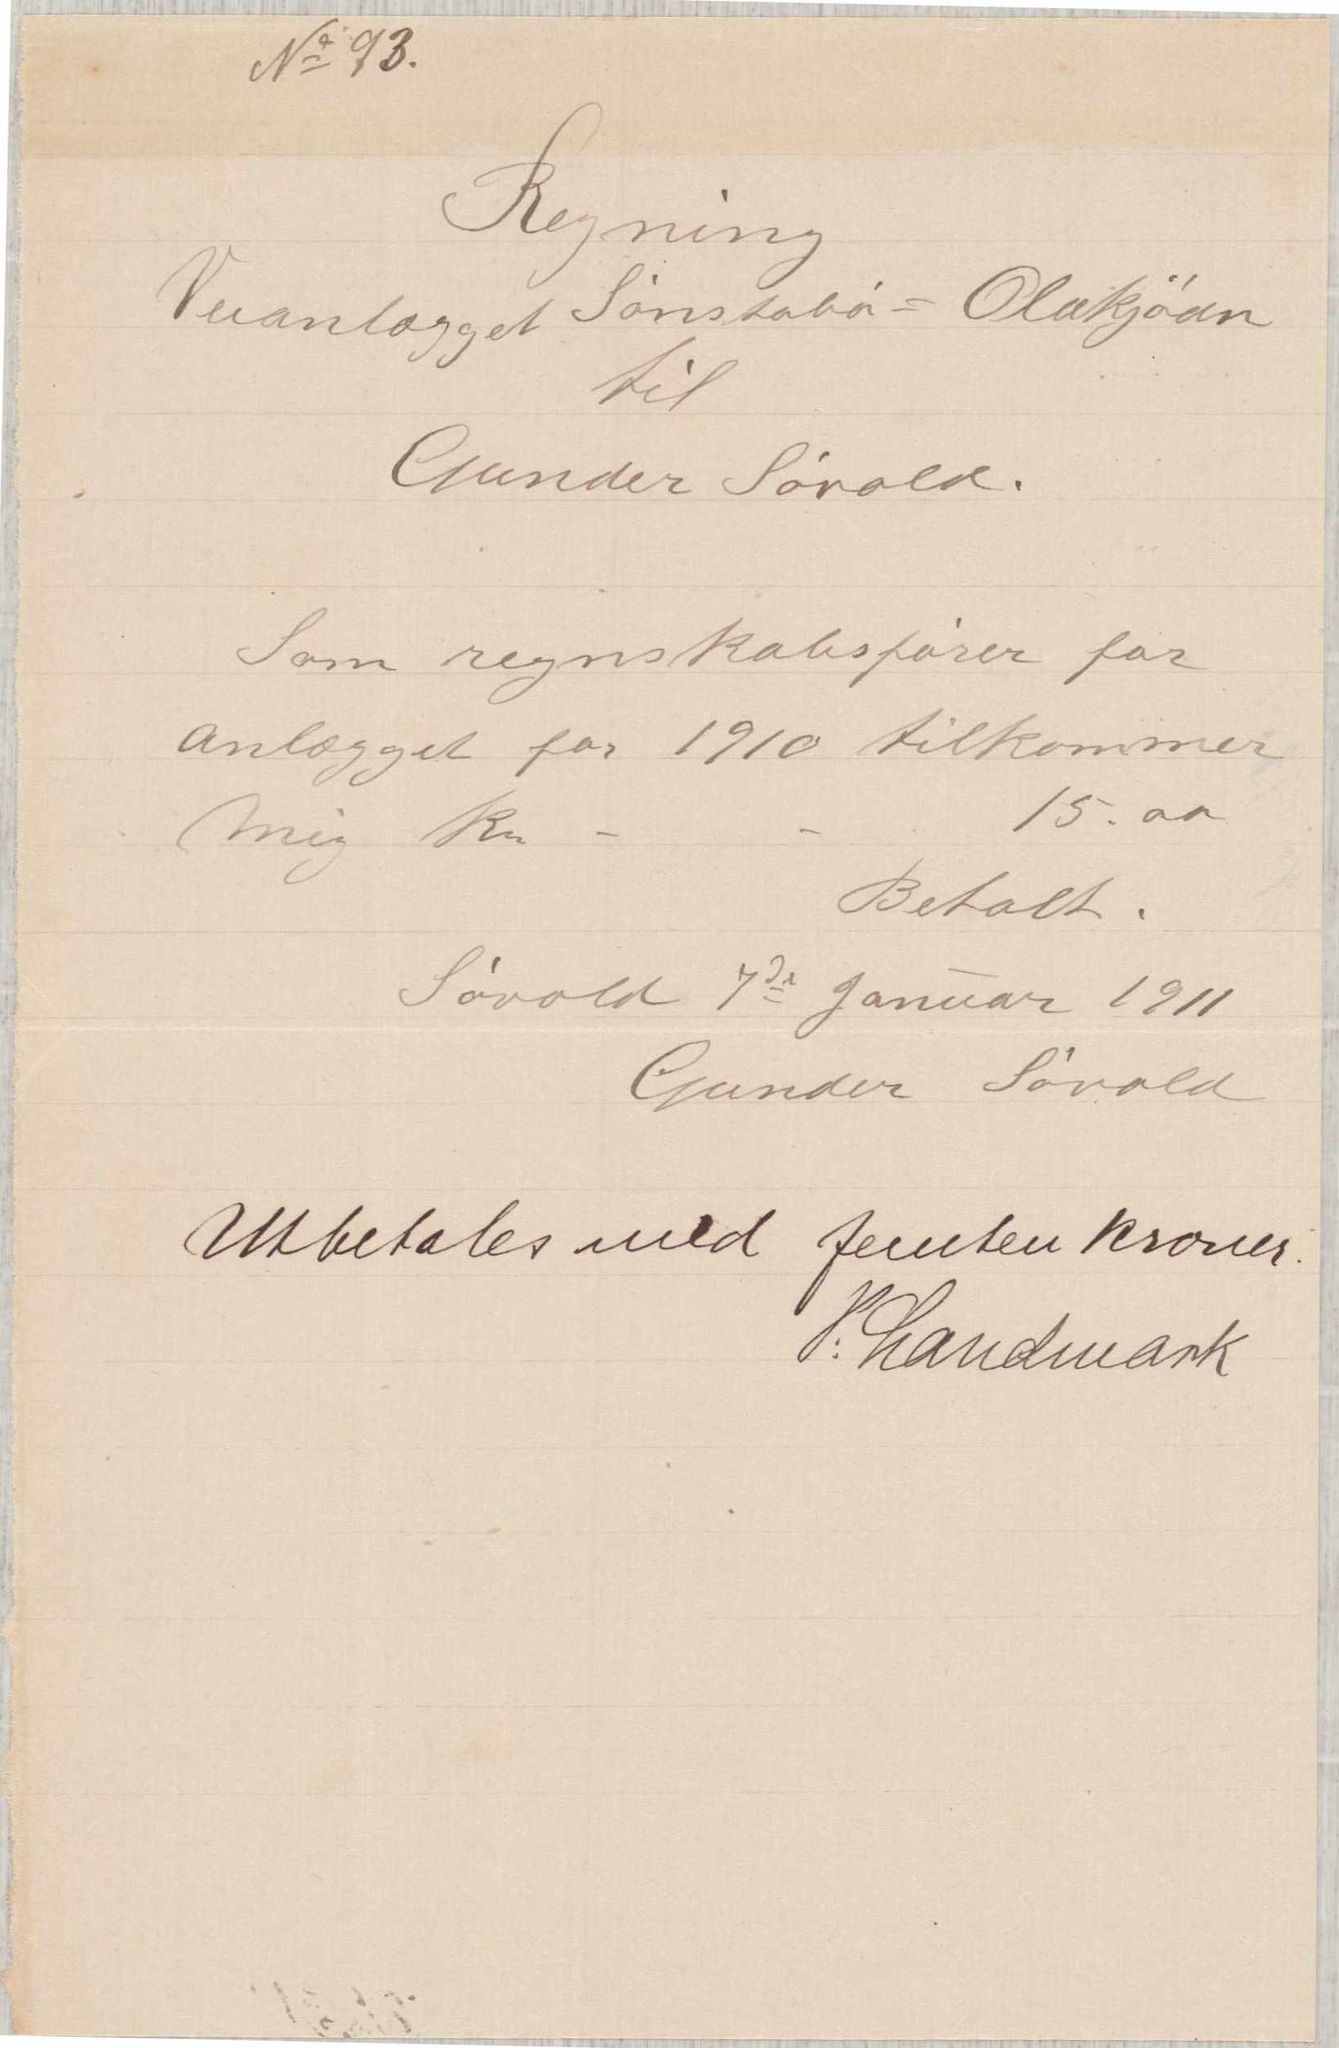 No 93.
Regning
Veianlægget Sönstabö = Olakjödn
til
Gunder Sövold.
Som regnskabsfører for
anlægget for 1910 tilkommer
mig Kr - - 15.00
Betalt.
Sövold 7de Januar 1911
Gunder Sövold
Utbetales med femten kroner.
P. Landmark